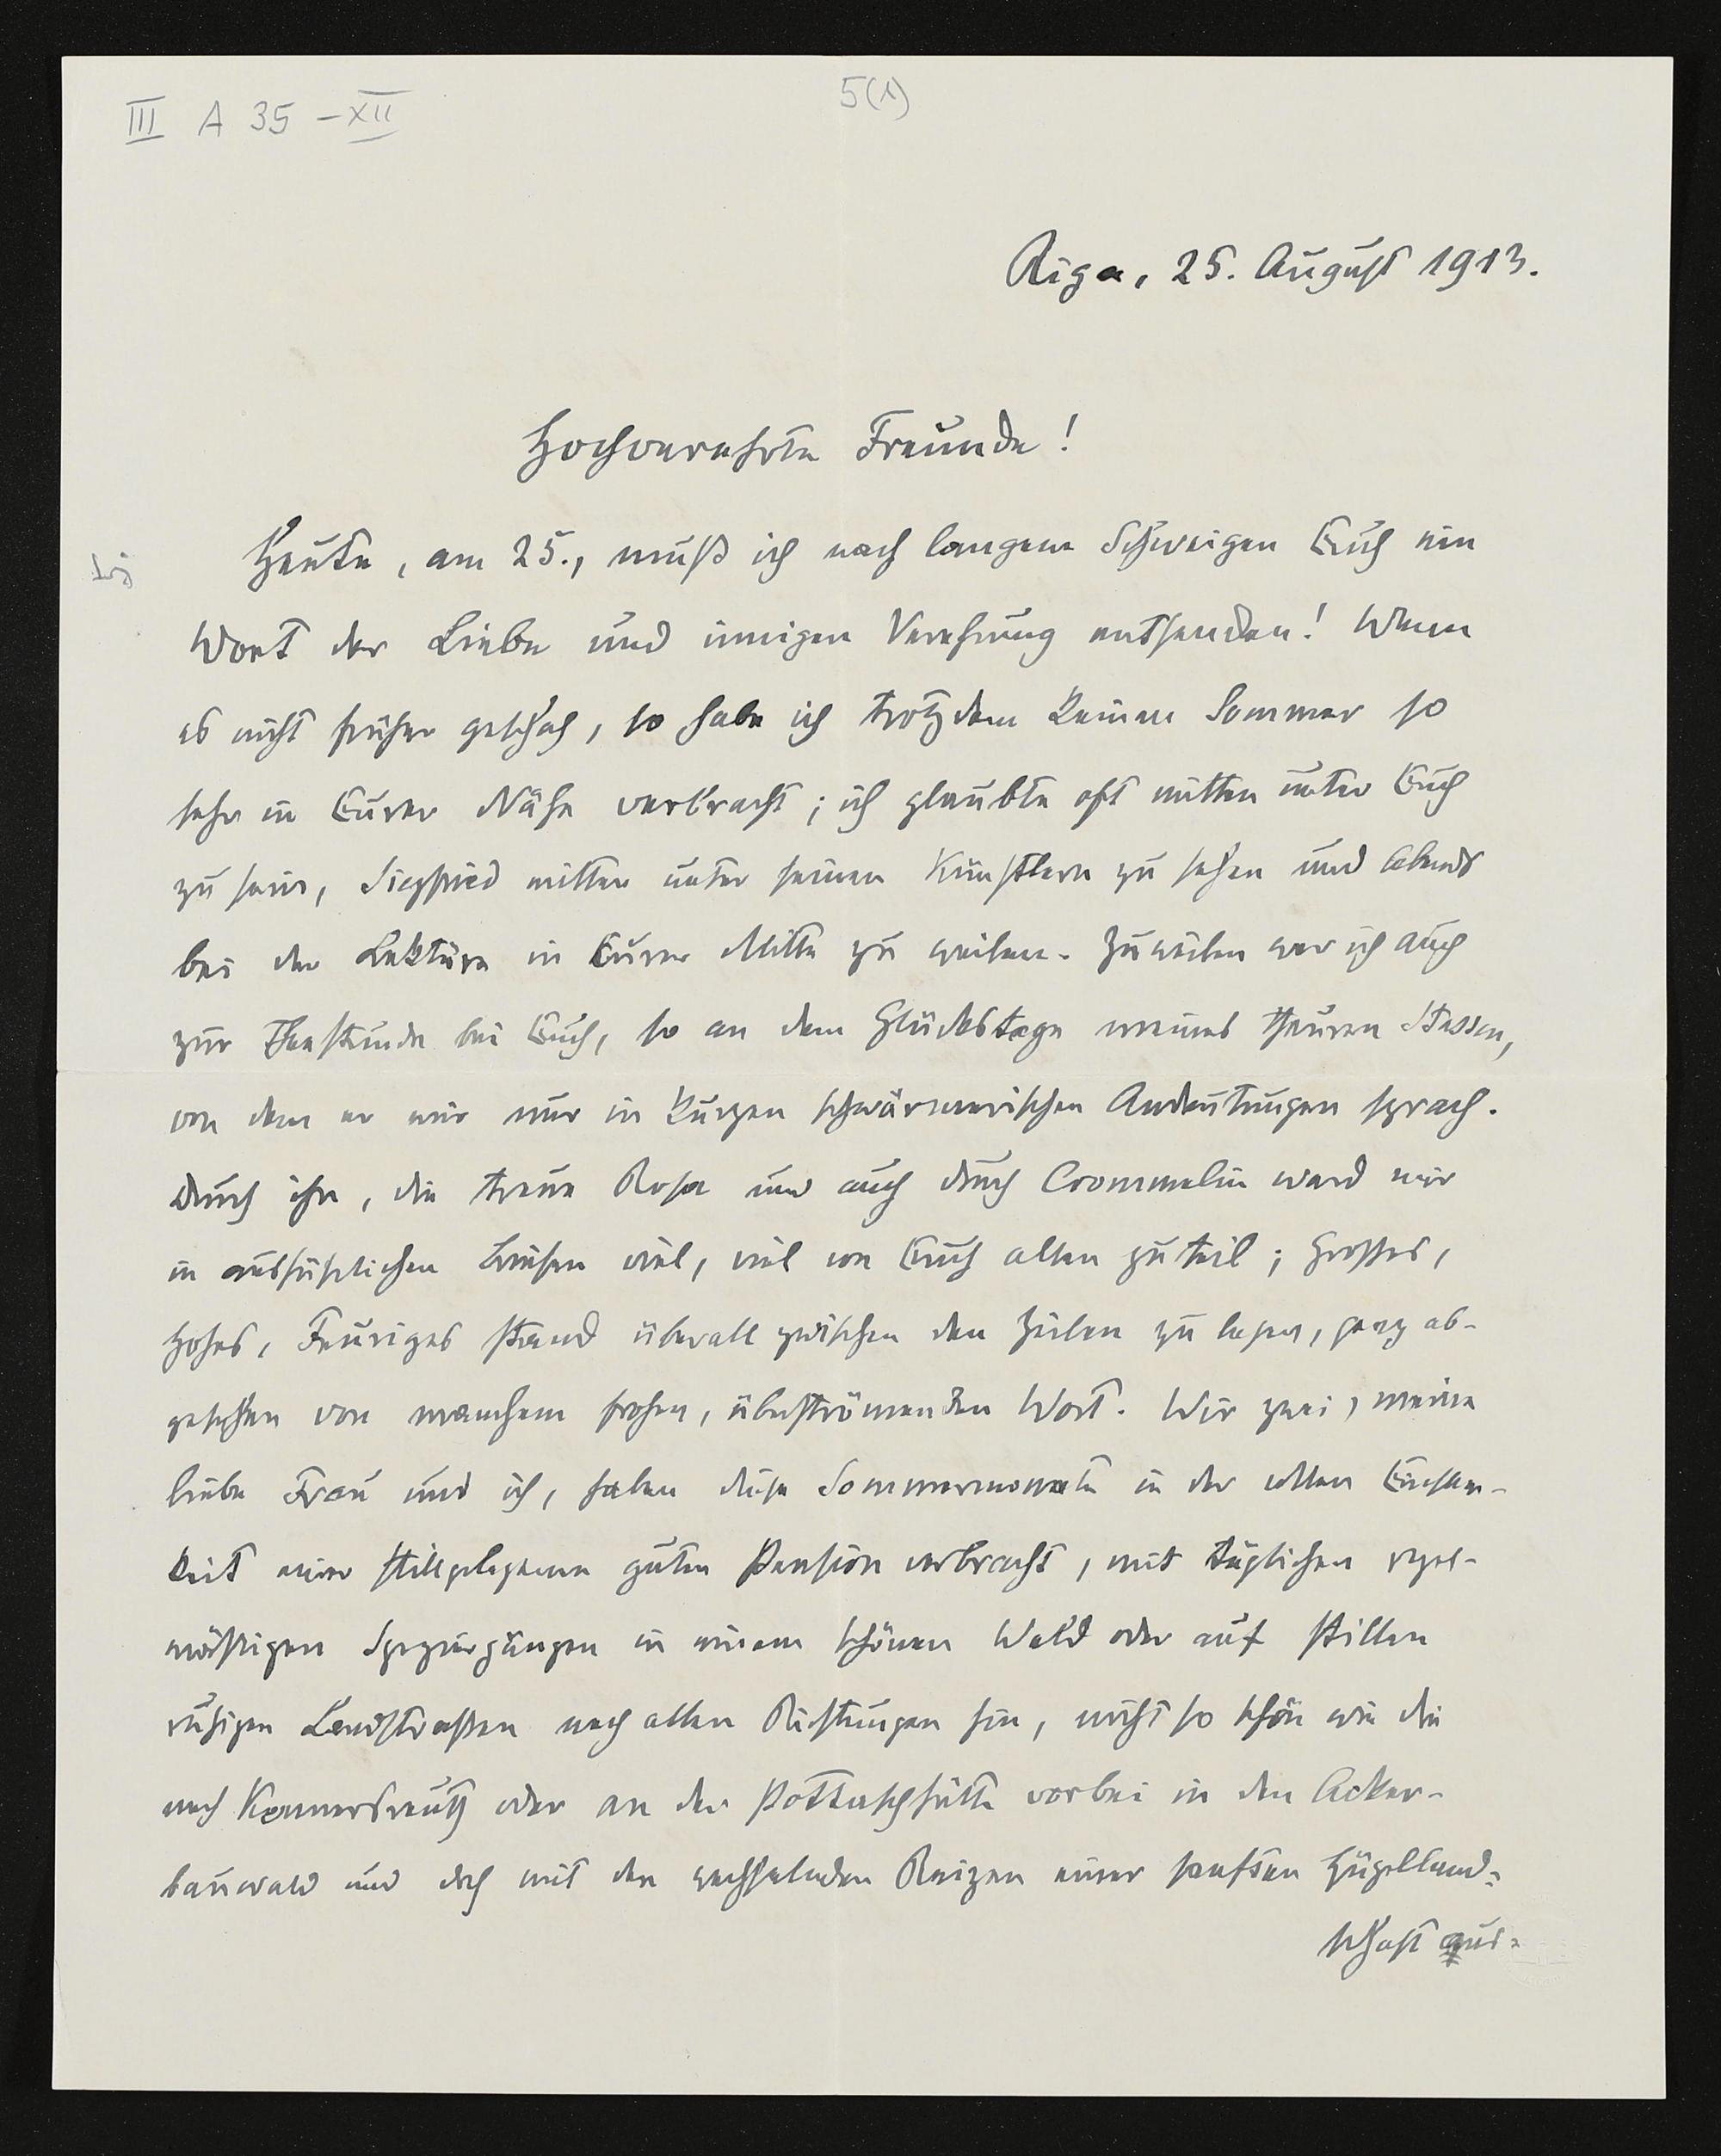 III A 35 – XII
5(1)
Riga, 25. August 1913.
Hochverehrte Freunde!
Heute, am 25., muß ich nach langem Schweigen Euch ein
Wort der Liebe und innigen Verehrung entsenden! Wenn
es nicht früher geschah, so habe ich trotzdem keinen Sommer so
sehr in Eurer Nähe verbracht; ich glaubte oft mitten unter Euch
zu sein, Siegfried mitten unter seinen Künstlern zu sehen und Abends
bei der Lektüre in Eurer Mitte zu weilen. Zuweilen war ich auch
zur Theestunde bei Euch, so an dem Glückstage meines theuren Stassen,
von dem er mir nur in kurzen schwärmerischen Andeutungen sprach.
Durch ihn, die treue Rosa und auch durch Crommelin ward mir
in ausführlichen Briefen viel, viel von Euch allen zuteil; Großes,
Hohes, Feuriges stand überall zwischen den Zeilen zu lesen, ganz ab-
gesehen von manchem frohen, überströmenden Wort. Wir zwei, meine
liebe Frau und ich, haben diese Sommermonate in der vollen Einsam-
keit einer stillgelegenen guten Pension verbracht, mit täglichen regel-
mäßigen Spaziergängen in einem schönen Wald oder auf stillen
ruhigen Landstraßen nach allen Richtungen hin, nicht so schön wie die
nach Konnersreuth oder an der Pottaschhütte vorbei in den Acker-
bauwald und doch mit den wechselnden Reizen einer sanften Hügelland-
schaft aus-